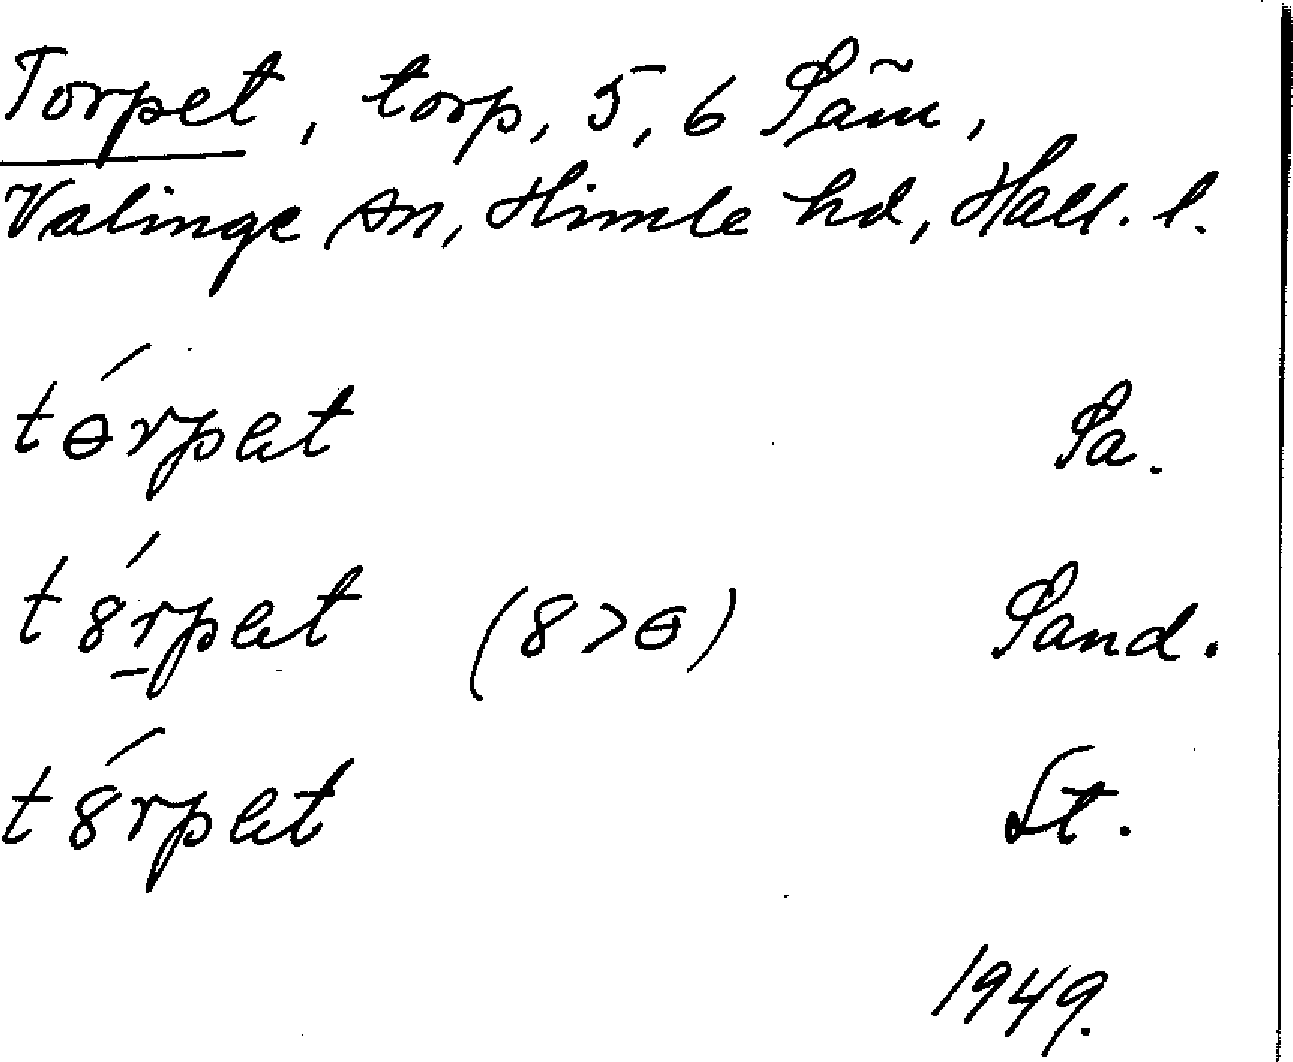 Torpet, torp, 5, 6 Säm,
Valinge sn, Himle hd, Hall. l.
tɵ́rpet Sa.
t8́rpet (8>ɵ) Sand.
t8́rpet St.
1949.